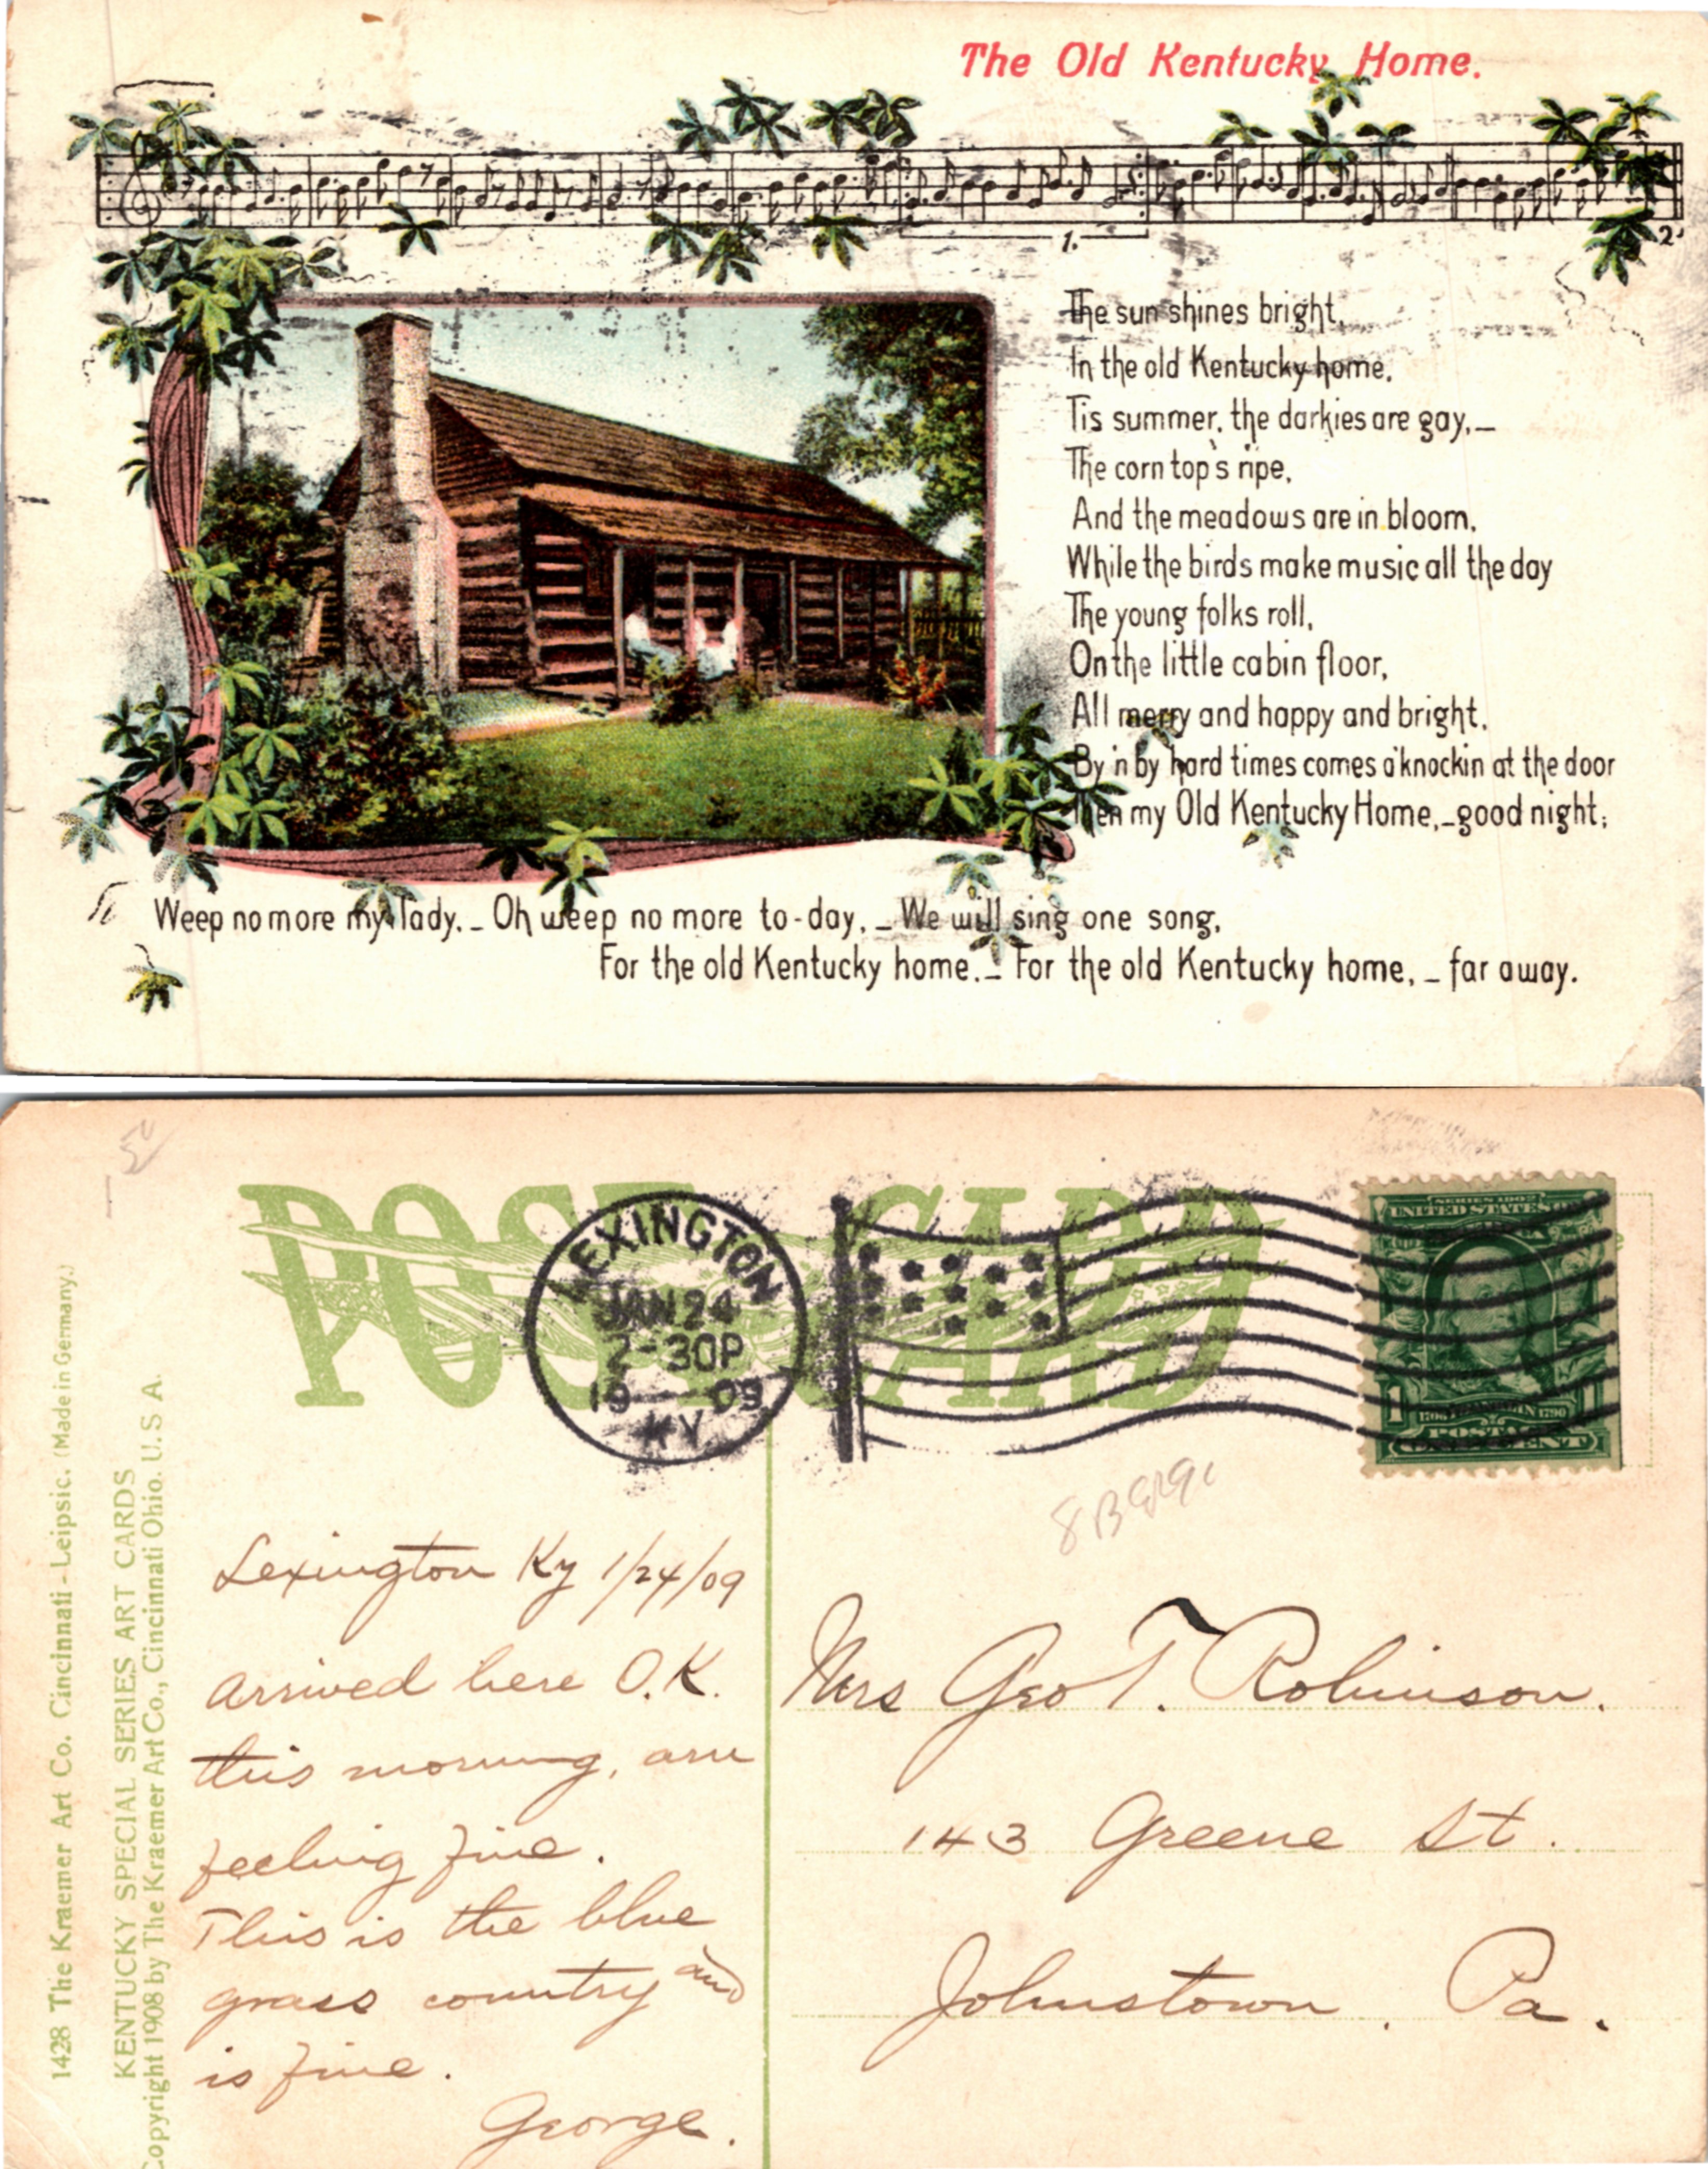 The Old Kentucky Home.
1.
2.
The sun shines bright,
In the old Kentucky home,
Tis summer, the darkies are gay,_
The corn top's ripe,
And the meadows are in bloom,
While the birds make music all the day
The young folks roll,
On the little cabin floor,
All merry and happy and bright,
By 'n by hard times comes a'knockin at the door
Then my Old Kentucky Home,_good night;
Weep no more my lady._ Oh weep no more to-day,_ We will sing one song,
For the old Kentucky home._ For the old Kentucky home,_ far away.
POST CARD
LEXINGTON
JAN 24
2-30P
19 09
KY
SERIES 1902
UNITED STATES OF
1 1
1706 FRANKLIN 1790
POSTAGE
ONE CENT
1428 The Kraemer Art Co. Cincinnati-Leipsic. (Made in Germany.)
KENTUCKY SPECIAL SERIES ART CARDS
Copyright 1908 by The Kraemer Art Co., Cincinnati Ohio. U.S A.
Lexington Ky 1/24/09
Arrived here O.K.
this morning, am
feeling fine.
This is the blue
grass country and
is fine.
George.
Mrs Geo T. Robinson.
143 Greene St.
Johnstown, Pa.